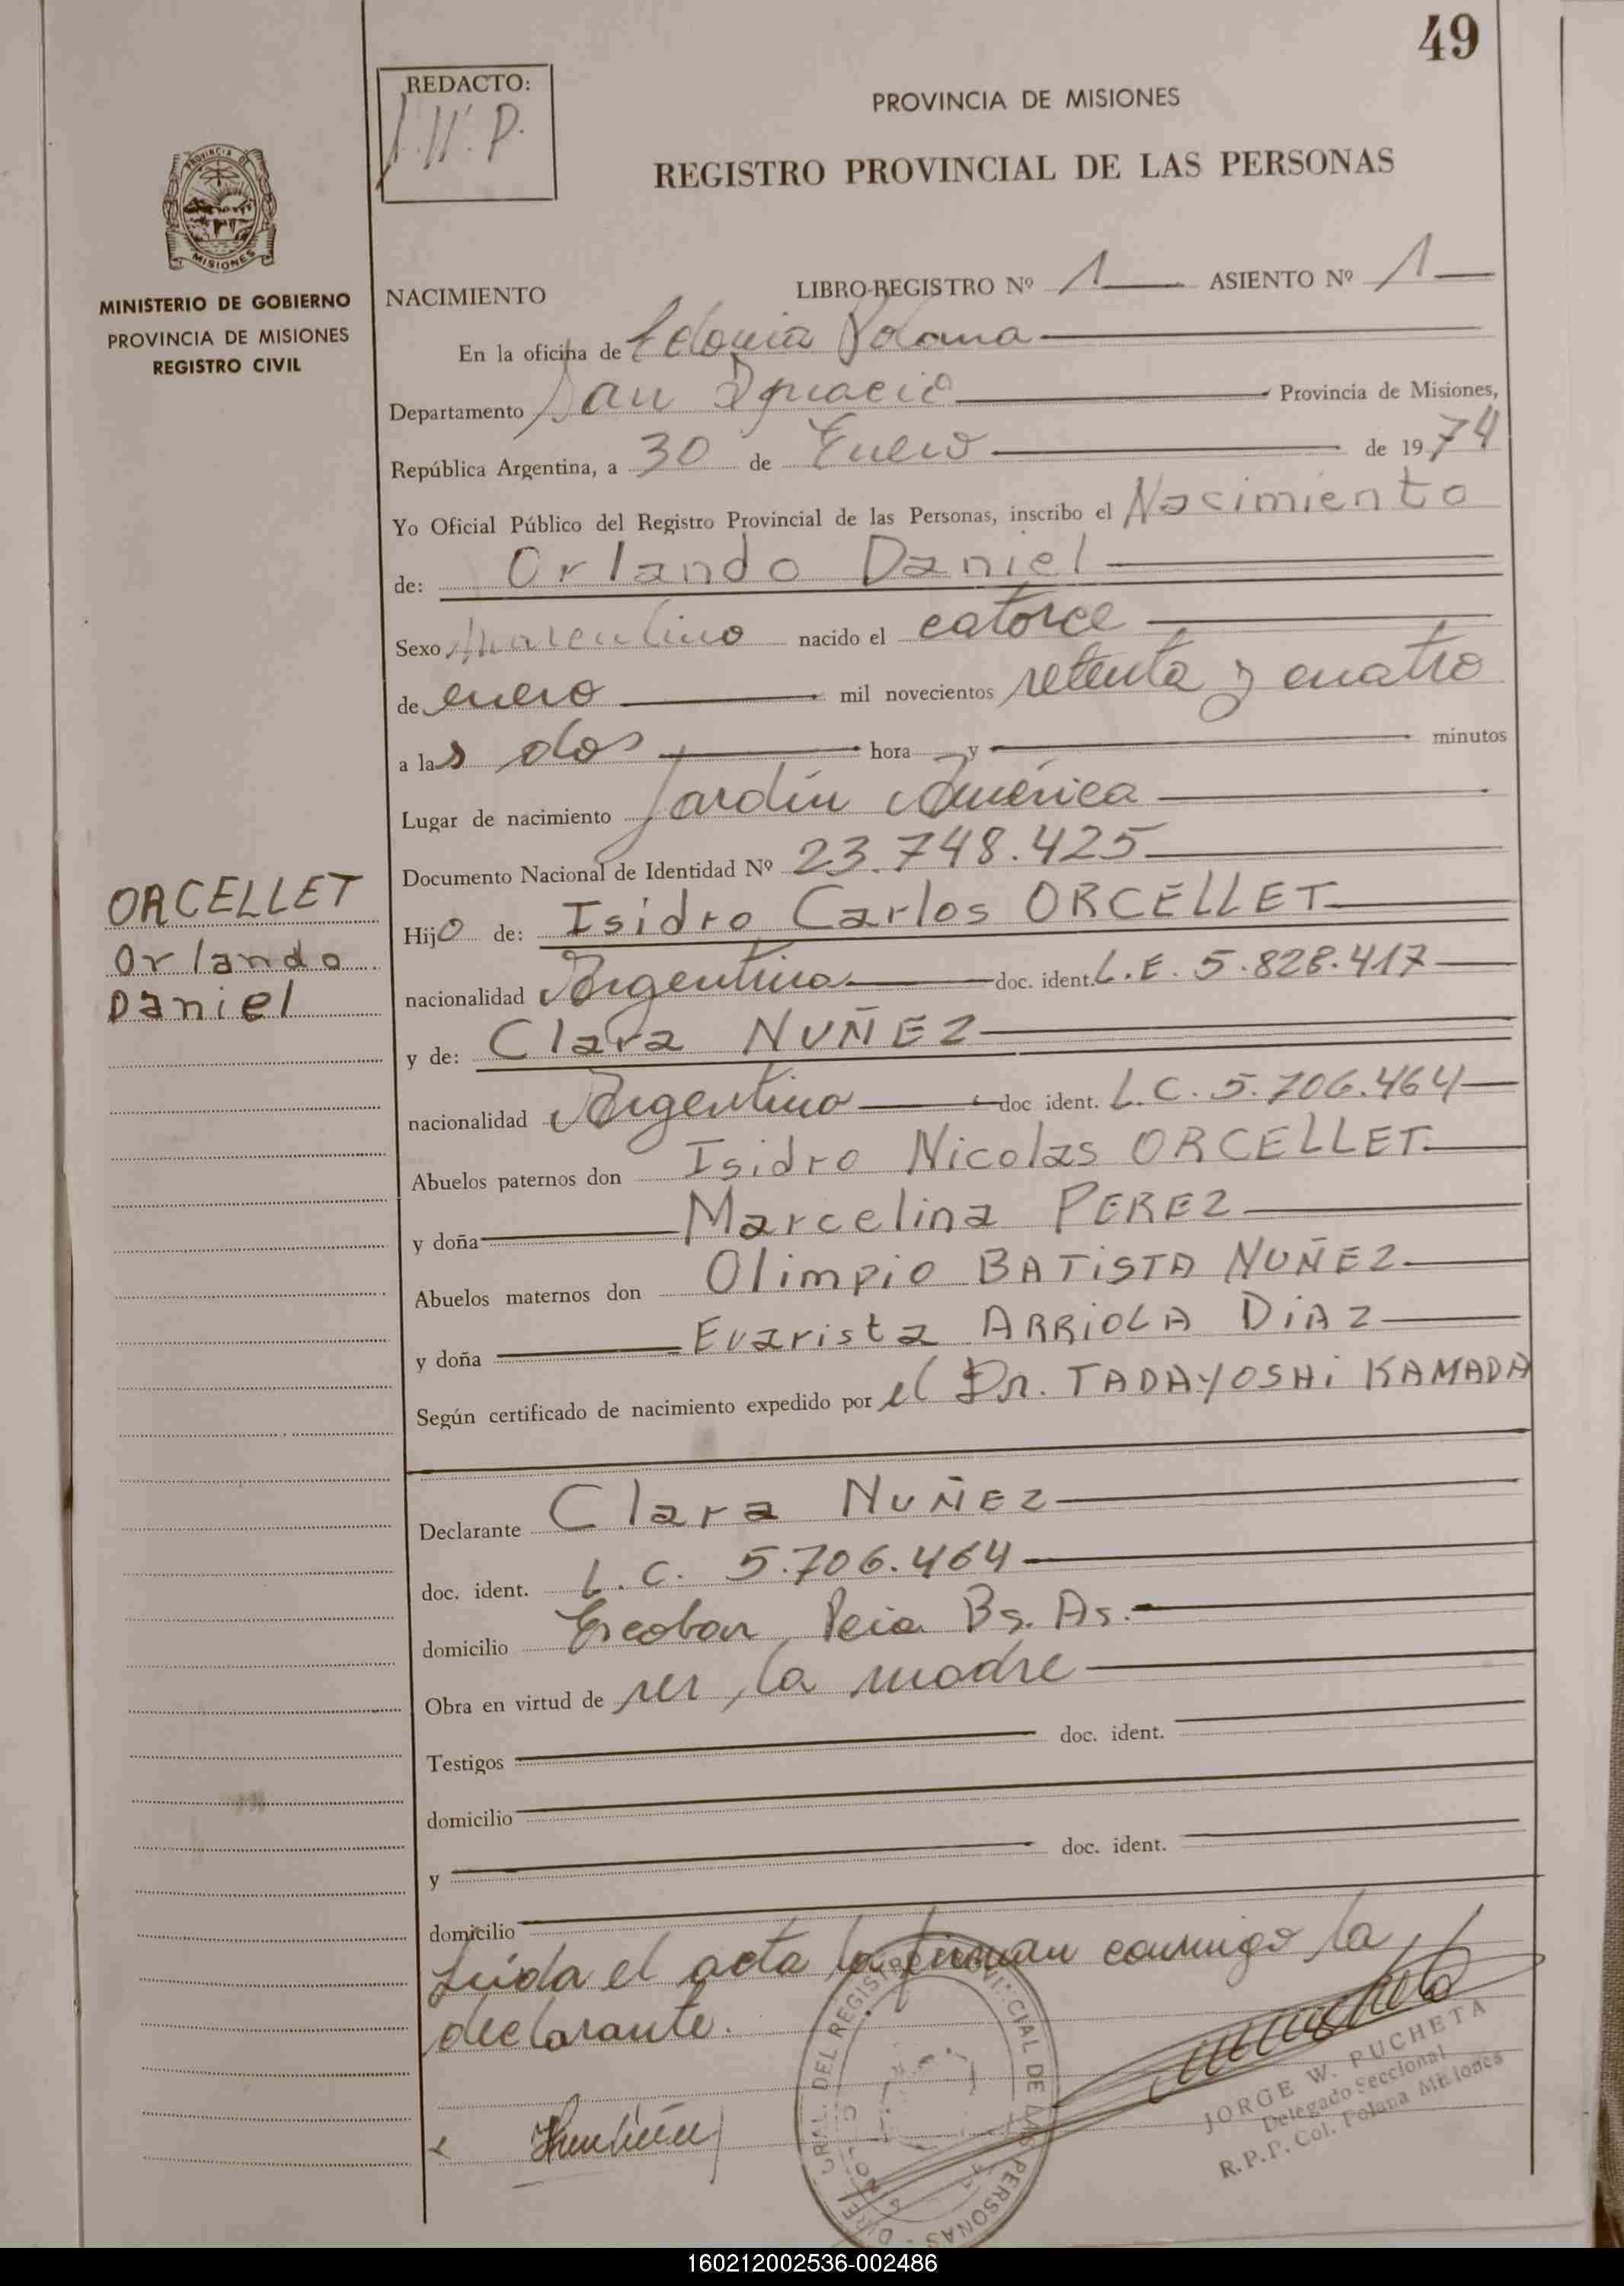 49
REDACTO:
PROVINCIA DE MISIONES
REGISTRO PROVINCIAL DE LAS PERSONAS
PROVINCIA DE
MISIONES
MINISTERIO DE GOBIERNO
PROVINCIA DE MISIONES
REGISTRO CIVIL
NACIMIENTO LIBRO-REGISTRO Nº 1 ASIENTO Nº 1
En la oficina de Colonia Polana
Departamento San Ignacio Provincia de Misiones,
República Argentina, a 30 de Enero de 1974
Yo Oficial Público del Registro Provincial de las Personas, inscribo el Nacimiento
de: Orlando Daniel
Sexo masculino nacido el catorce
de enero mil novecientos setenta y cuatro
a las dos hora y minutos
Lugar de nacimiento Jardín América
Documento Nacional de Identidad Nº 23.748.425
ORCELLET
Orlando
Daniel
Hijo de: Isidro Carlos ORCELLET
nacionalidad Argentina doc. ident. L.E. 5.828.417
y de: Clara NUÑEZ
nacionalidad Argentina doc ident. L.C. 5.706.464
Abuelos paternos don Isidro Nicolas ORCELLET
y doña Marcelina PEREZ
Abuelos maternos don Olimpio BATiSTA NUÑEZ
y doña Evarista ARRiOLA DiAZ
Según certificado de nacimiento expedido por el Dr. TADAYOSHi KAMADA
Declarante Clara NUÑEZ
doc. ident. L.C. 5.706.464
domicilio Escobar Pcia Bs. As.
Obra en virtud de ser la madre
Testigos doc. ident.
domicilio
y doc. ident.
domicilio
Leída el acta la firman conmigo la
declarante.
JORGE W. PUCHETA
Delegado Seccional
R.P.P. Col. Polana Misiones
160212002536-002486